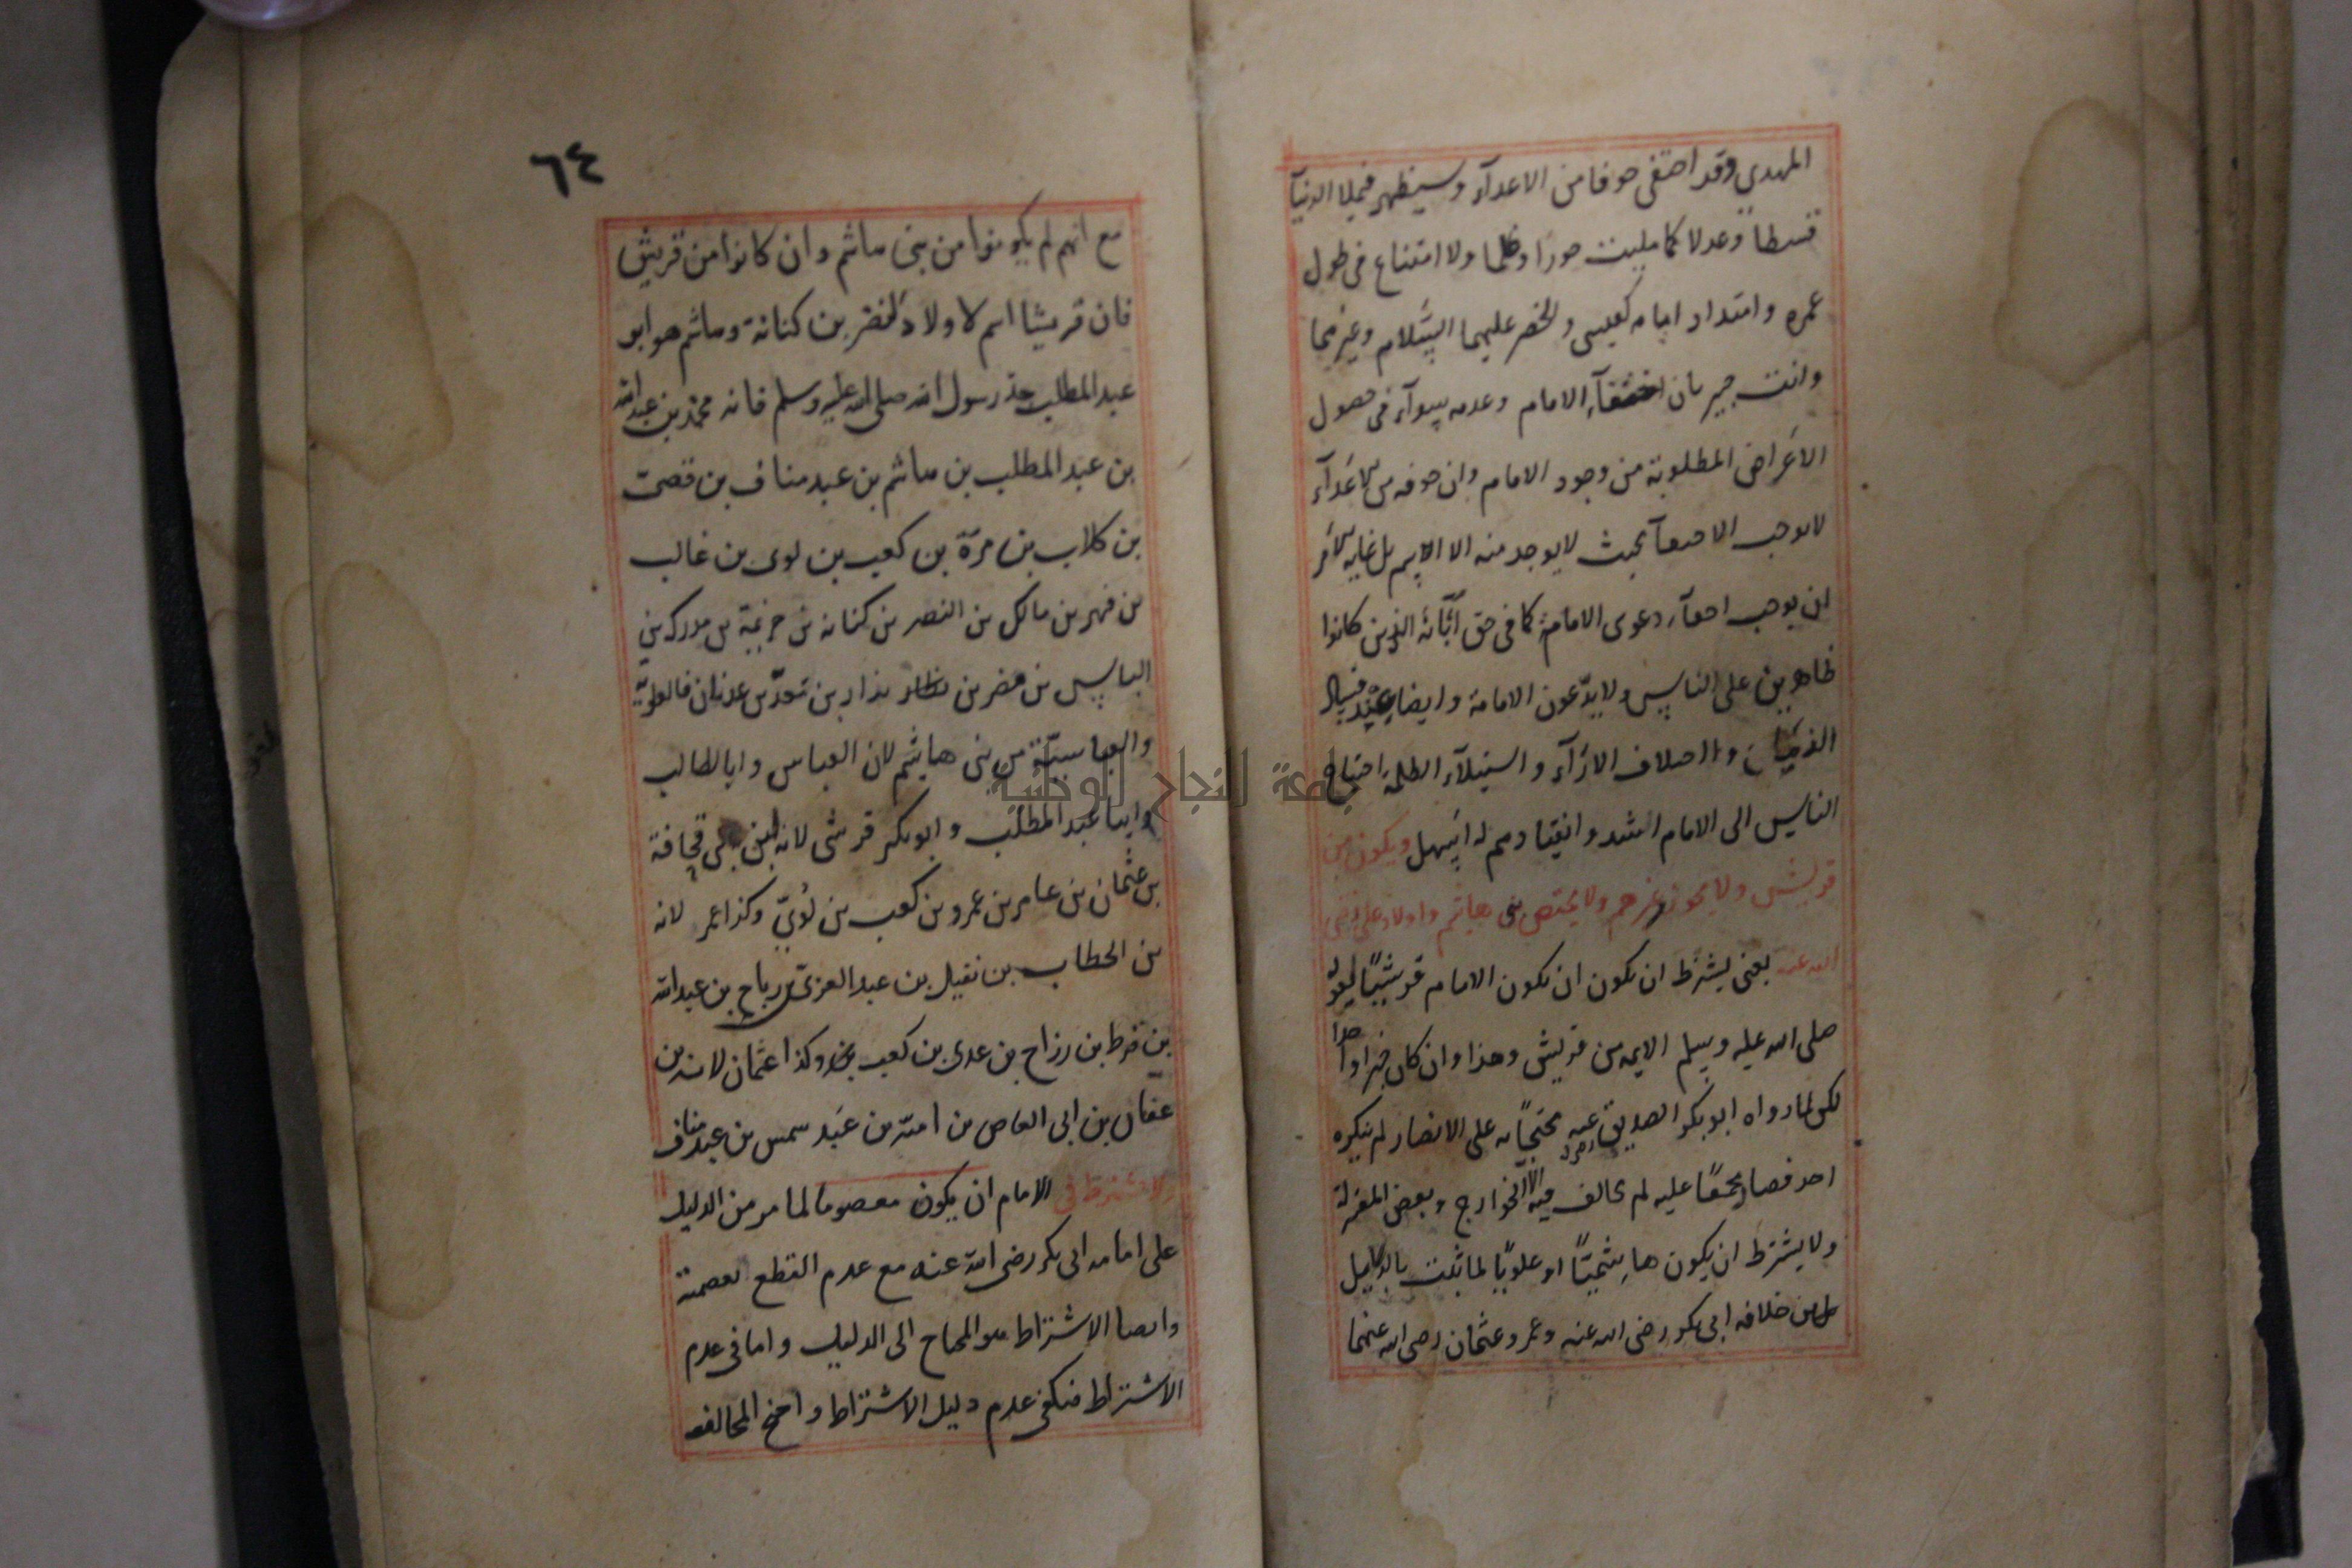 المهدي وقد اختفى خوفا من الاعدآء وسيظهر فيملا الدنيا
قسطا وعدلا كما مليت جورا وظلما ولا امتناع في طول
عمره وامتداد ايامه كعيسى والخضر عليهما السلام وغيرهما
وانت خبير بان اختفآء الامام وعدمه سوآء في حصول
الاغراض المطلوبة من وجود الامام وان خوفه من الاعدآء
لا يوجب الاختفآ بحيث لا يوجد منه الا الاسم بل غاية الامر
ان يوجب اخفآء دعوى الامامة كما في حق آبائه الذين كانوا
ظاهرين على الناس ولا يدّعون الامامة وايضا فعند فساد
الزمان واختلاف الارآء واستيلآء الظلمة احتياج
الناس الى الامام اشد وانقيادهم له اسهل ويكون من
قريش ولا يجوز غيرهم ولا يختص ببني هاشم واولاد علي رضي
الله عنه يعني يشترط ان يكون ان يكون الامام قريشيّا لقوله
صلى الله عليه وسلم الايمة من قريش وهذا وان كان خبرا واحدا
لكن لما رواه ابو بكر الصديق عنه محتجّا به على الانصار لم ينكره
احد فصار مجمعًا عليه لم يخالف فيه الا الخوارج وبعض المعتزلة
ولا يشترط ان يكون هاشميّا او علويّا لما ثبت بالدلايل
من خلافة ابي بكر رضى الله عنه وعمر وعثمان رضى الله عنهما
٦٤
مع انهم لم يكونوا من بنى هاشم وان كانوا من قريش
فان قريشا اسم لاولاد النضر بن كنانة وهاشم هو ابو
عبد المطلب جد رسول الله صلى الله عليه وسلم فانه محمد بن عبد الله
بن عبد المطلب بن هاشم بن عبد مناف بن قصى
بن كلاب بن مرّة بن كعب بن لوى بن غالب
بن فهر بن مالك بن النضر بن كنانة بن خزيمة بن مدركه بن
الياس بن مضر بن نزار بن معدّ بن عدنان فالعلويّة
والعباسيّة من بنى هاشم لان العباس وابا طالب
وابنا عبد المطلب وابو بكر قرشى لانه ابن ابي قحافة
بن عثمان بن عامر بن عمرو بن كعب بن لُؤيّ وكذا عمر لانه
بن الخطاب بن نفيل بن عبد العزى بن رباح بن عبد الله
بن قرط بن رزاح بن عدى بن كعب وكذا عثمان لانه بن
عفان بن ابى العاص بن اميّة بن عبد شمس بن عبد مناف
ولا يشترط في الامام ان يكون معصوما لما مر من الدليل
على امامة ابى بكر رضى الله عنه مع عدم القطع بعصمته
وايضا الاشتراط هو المحتاج الى الدليل واما في عدم
الاشتراط فيكفي عدم دليل الاشتراط واحتج المخالف
جامعة النجاح الوطنية